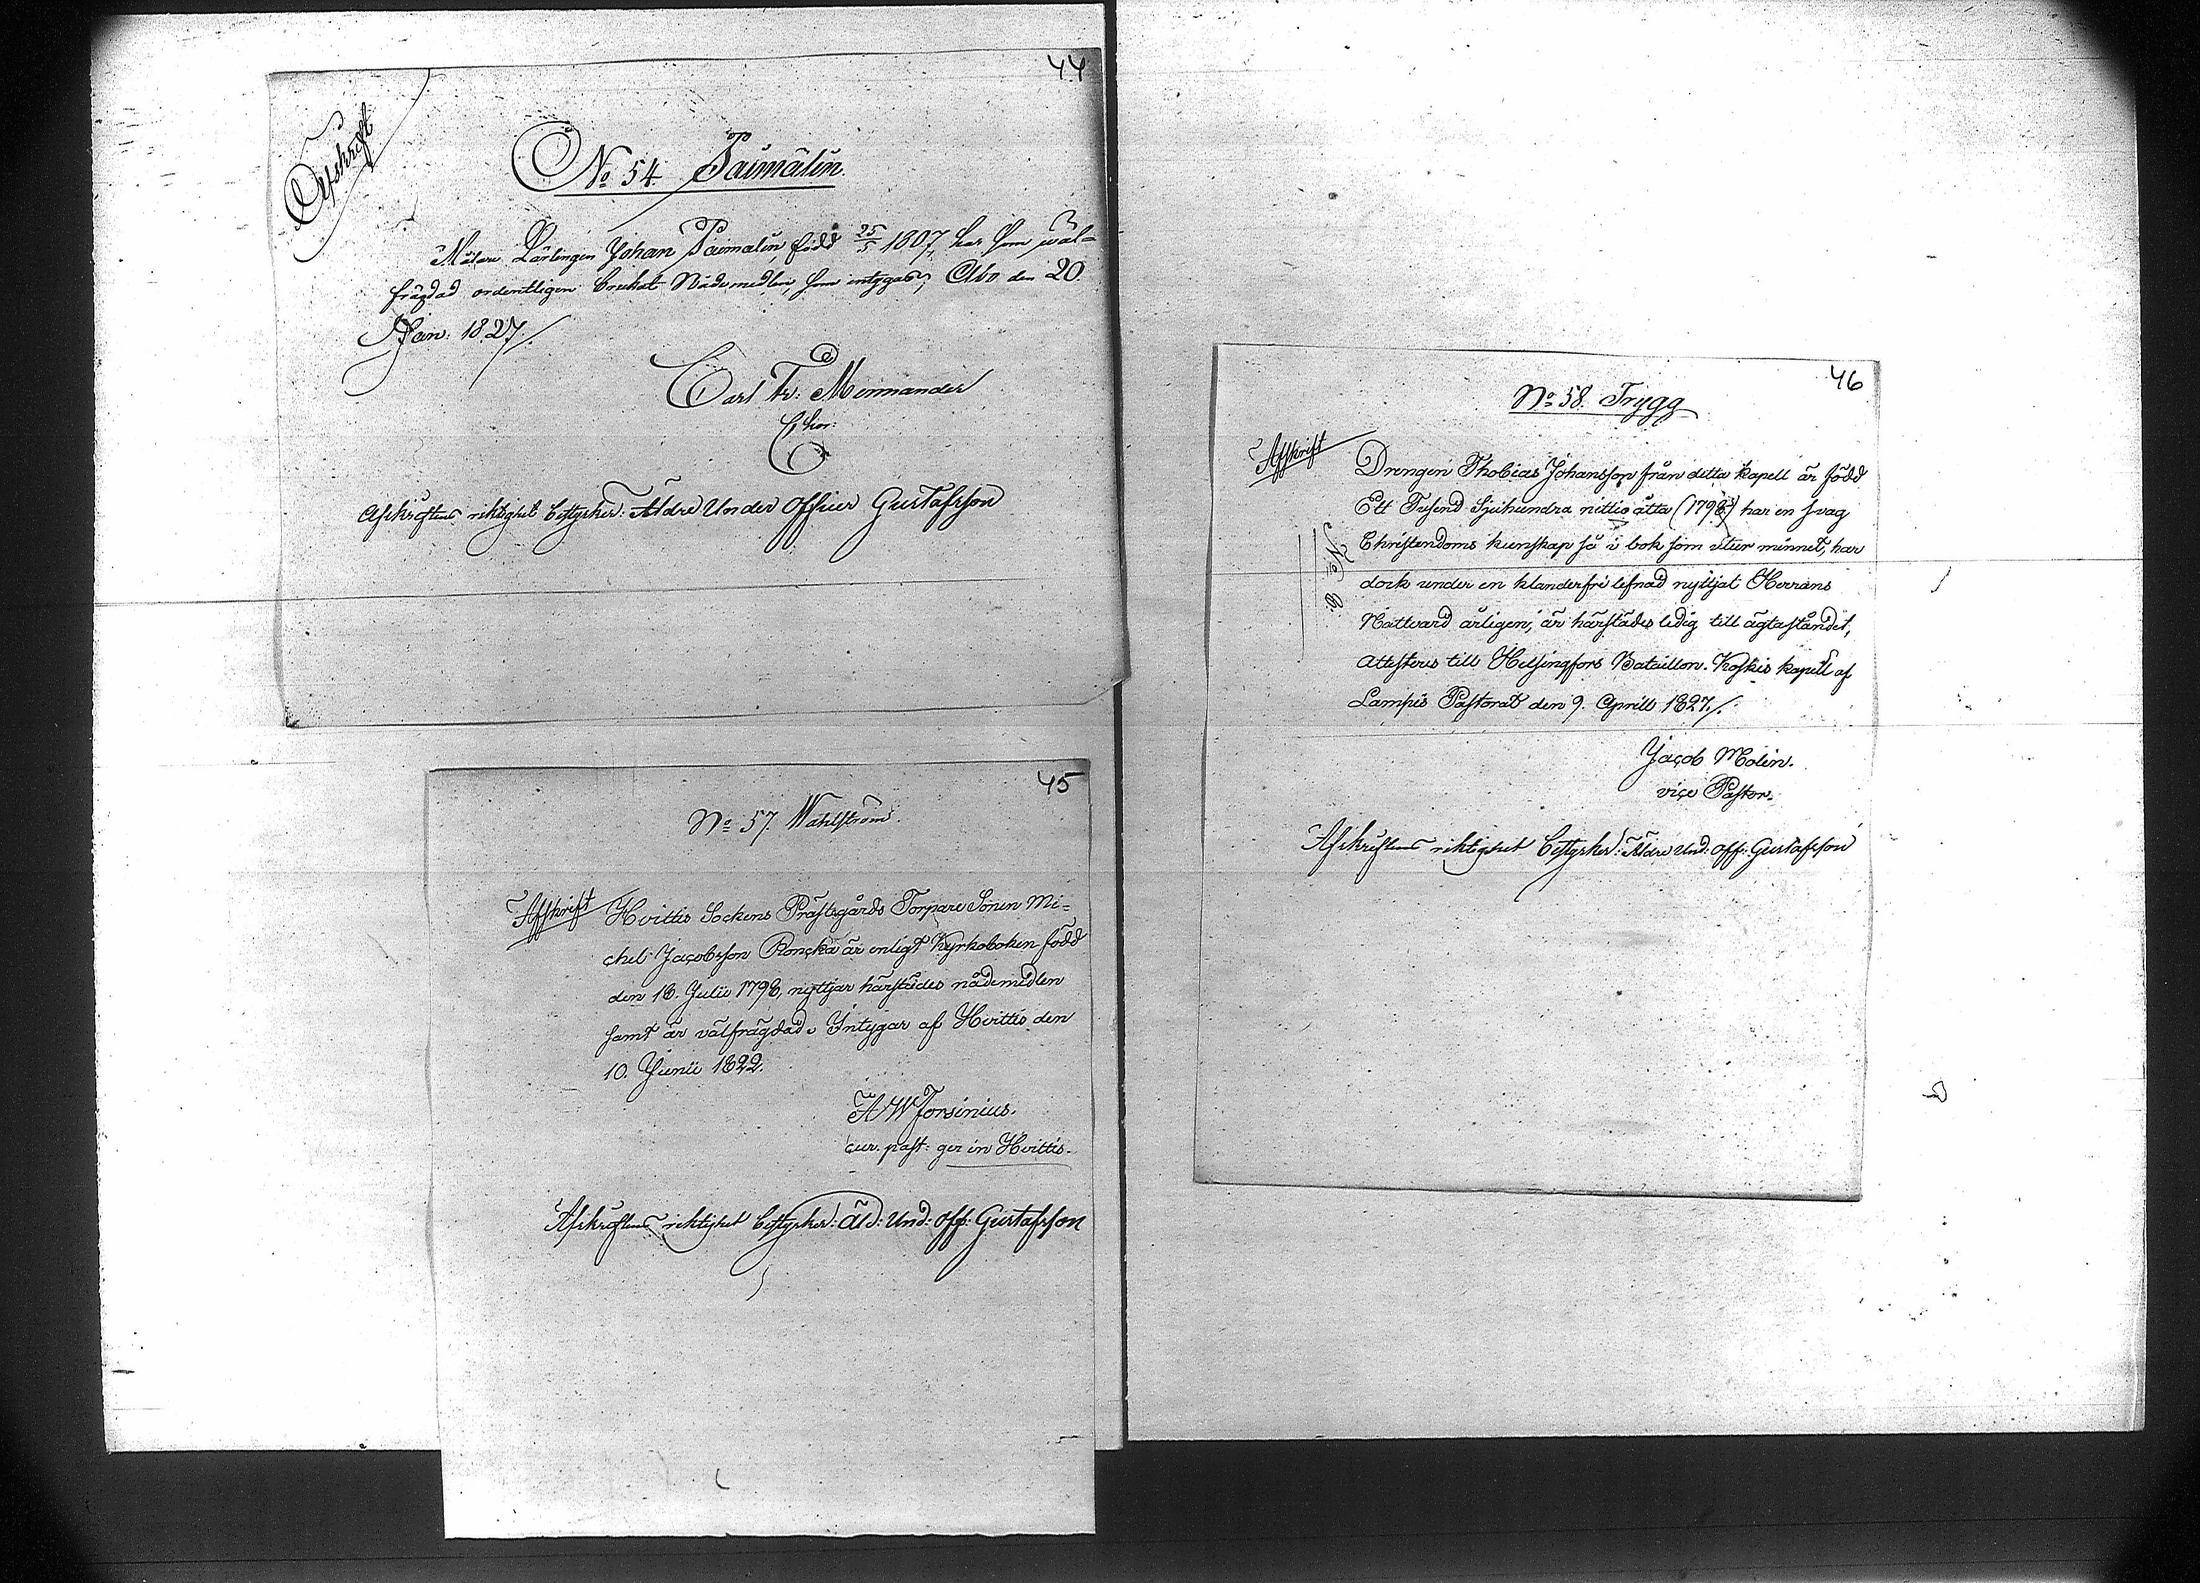 44
Afskrift
No 54. Paimalin.
Målare Lärlingen Johan Paimalin, född 25/5 1807, har som wäl-
frägdad ordentligen brukat Nådemedlen, som intygas; Åbo den 20
Jan: 1827./.
Carl Fr: Mennander
Afskriftens riktighet bestyrker: Äldre Under Officer Gustafsson
45
No 57. Wahlström.
Afskrift
Hvittis Sockens Prästgårds Torpare Sonen Mi-
chel Jacobsson Ronckä är enligt Kyrkoboken född
den 18. Julii 1798, nyttjar härstädes nådemedlen
samt är välfrägdad. Intygar af Hvittis den
10. Junii 1822.
A W Forsinius.
cur. past: ger in Hvittis.
Afskriftens riktighet bestyrker: Äld: Und: Off: Gustafsson
46
No 58. Trygg
Afskrift
No 8.
Drengen Thobias Johansson från detta kapell är född
Ett Tusend Sjuhundra nittio åtta (1798) har en svag
Christendoms kunskap så i bok som utur minnet, har
dock under en klanderfri lefnad nyttjat Herrans
Nattvard årligen, är härstädes ledig till ägtaståndet,
attesteras till Helsingfors Bataillon. Koskis kapell af
Lampis Pastorat den 9. Aprill 1827./.
Jacob Molin.
vice Pastor.
Afskriftens riktighet bestyrker: Äldre Und: Off: Gustafsson